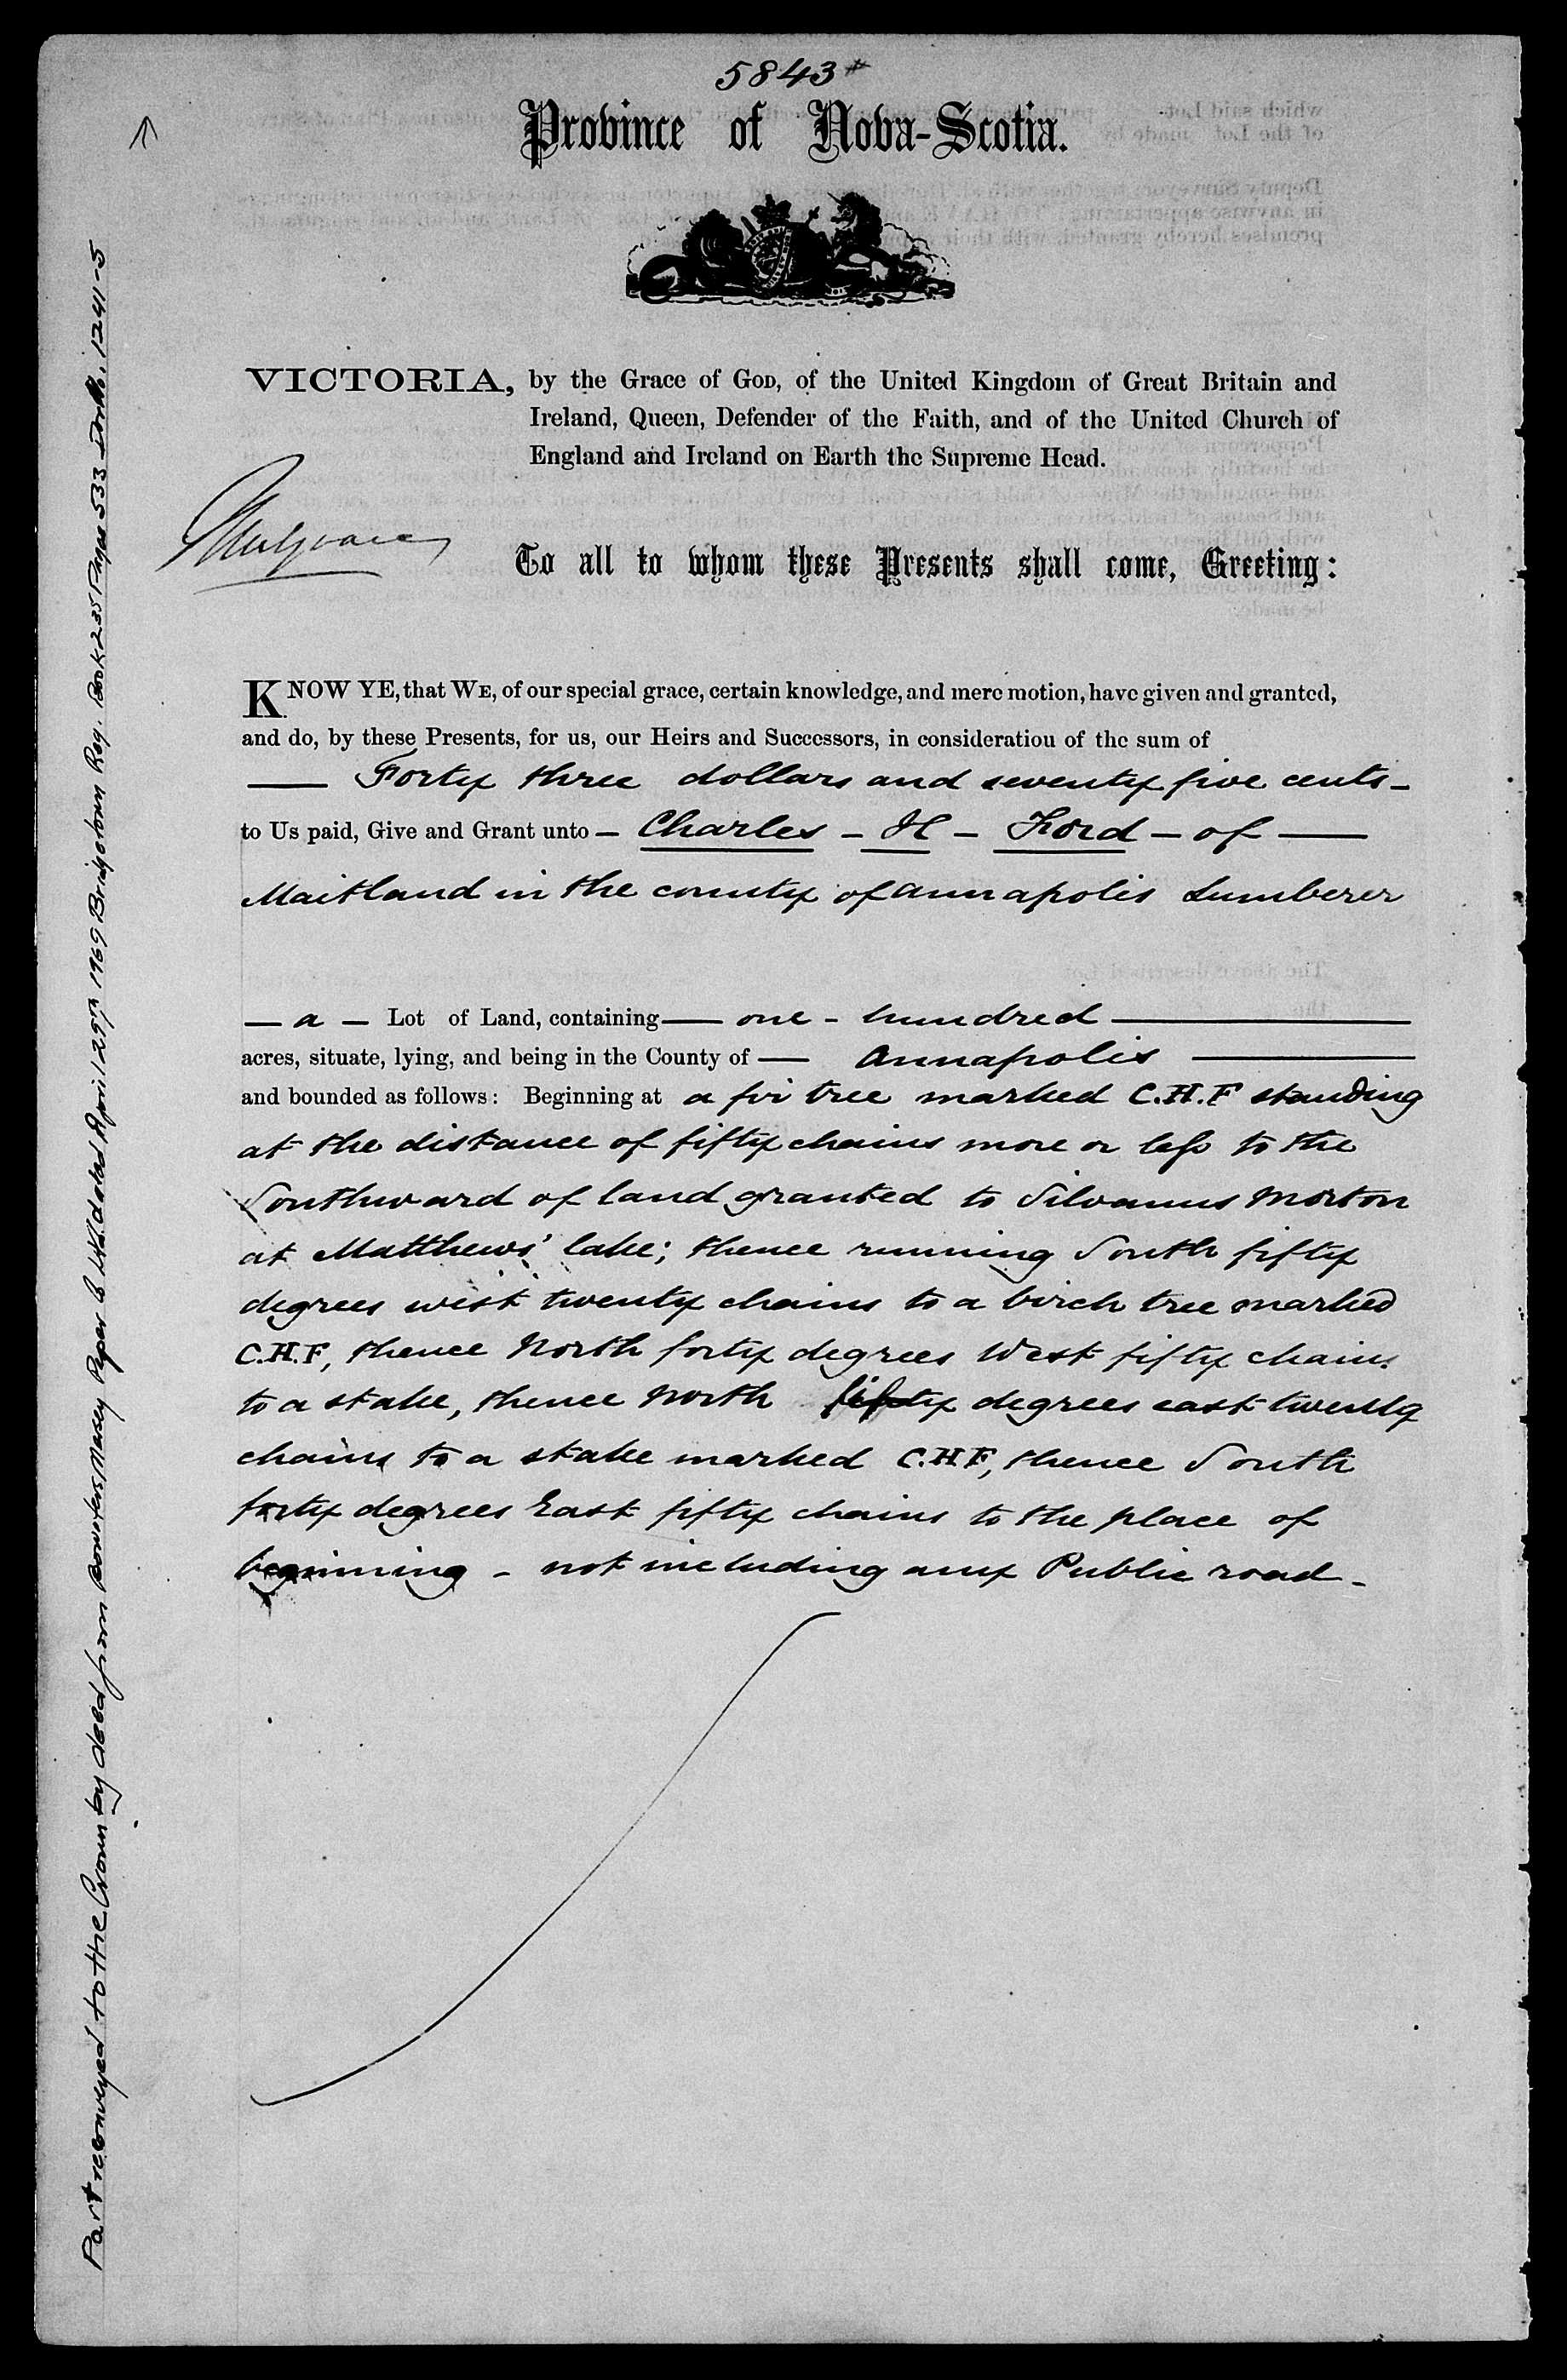 5843
Province of Nova-Scotia.
VICTORIA, by the Grace of GOD, of the United Kingdom of Great Britain and
Ireland, Queen, Defender of the Faith, and of the United Church of
England and Ireland on Earth the Supreme Head.
Mulgrave
To all to whom these Presents shall come, Greeting:
KNOW YE, that WE, of our special grace, certain knowledge, and mere motion, have given and granted,
and do, by these Presents, for us, our Heirs and Successors, in consideration of the sum of
— Forty three dollars and seventy five cents –
to Us paid, Give and Grant unto – Charles – H – Ford – of —
Maitland in the county of Annapolis Lumberer
— a — Lot of Land, containing — one - hundred —
acres, situate, lying, and being in the County of — Annapolis —
and bounded as follows: Beginning at a fir tree marked C.H.F standing
at the distance of fifty chains more or less to the
Southward of land granted to Silvanus Morton
at Matthews' lake; thence running South fifty
degrees west twenty chains to a birch tree marked
C.H.F, thence North forty degrees West fifty chains
to a stake, thence North fifty degrees east twenty
chains to a stake marked C.H.F, thence South
forty degrees East fifty chains to the place of
beginning – not including any Public road –
Part reconveyed to the Crown by deed from Bowaters Mersey Paper Co Ltd. dated April 29th 1969 Bridgetown Reg. Book 235 Pages 533 1241-5